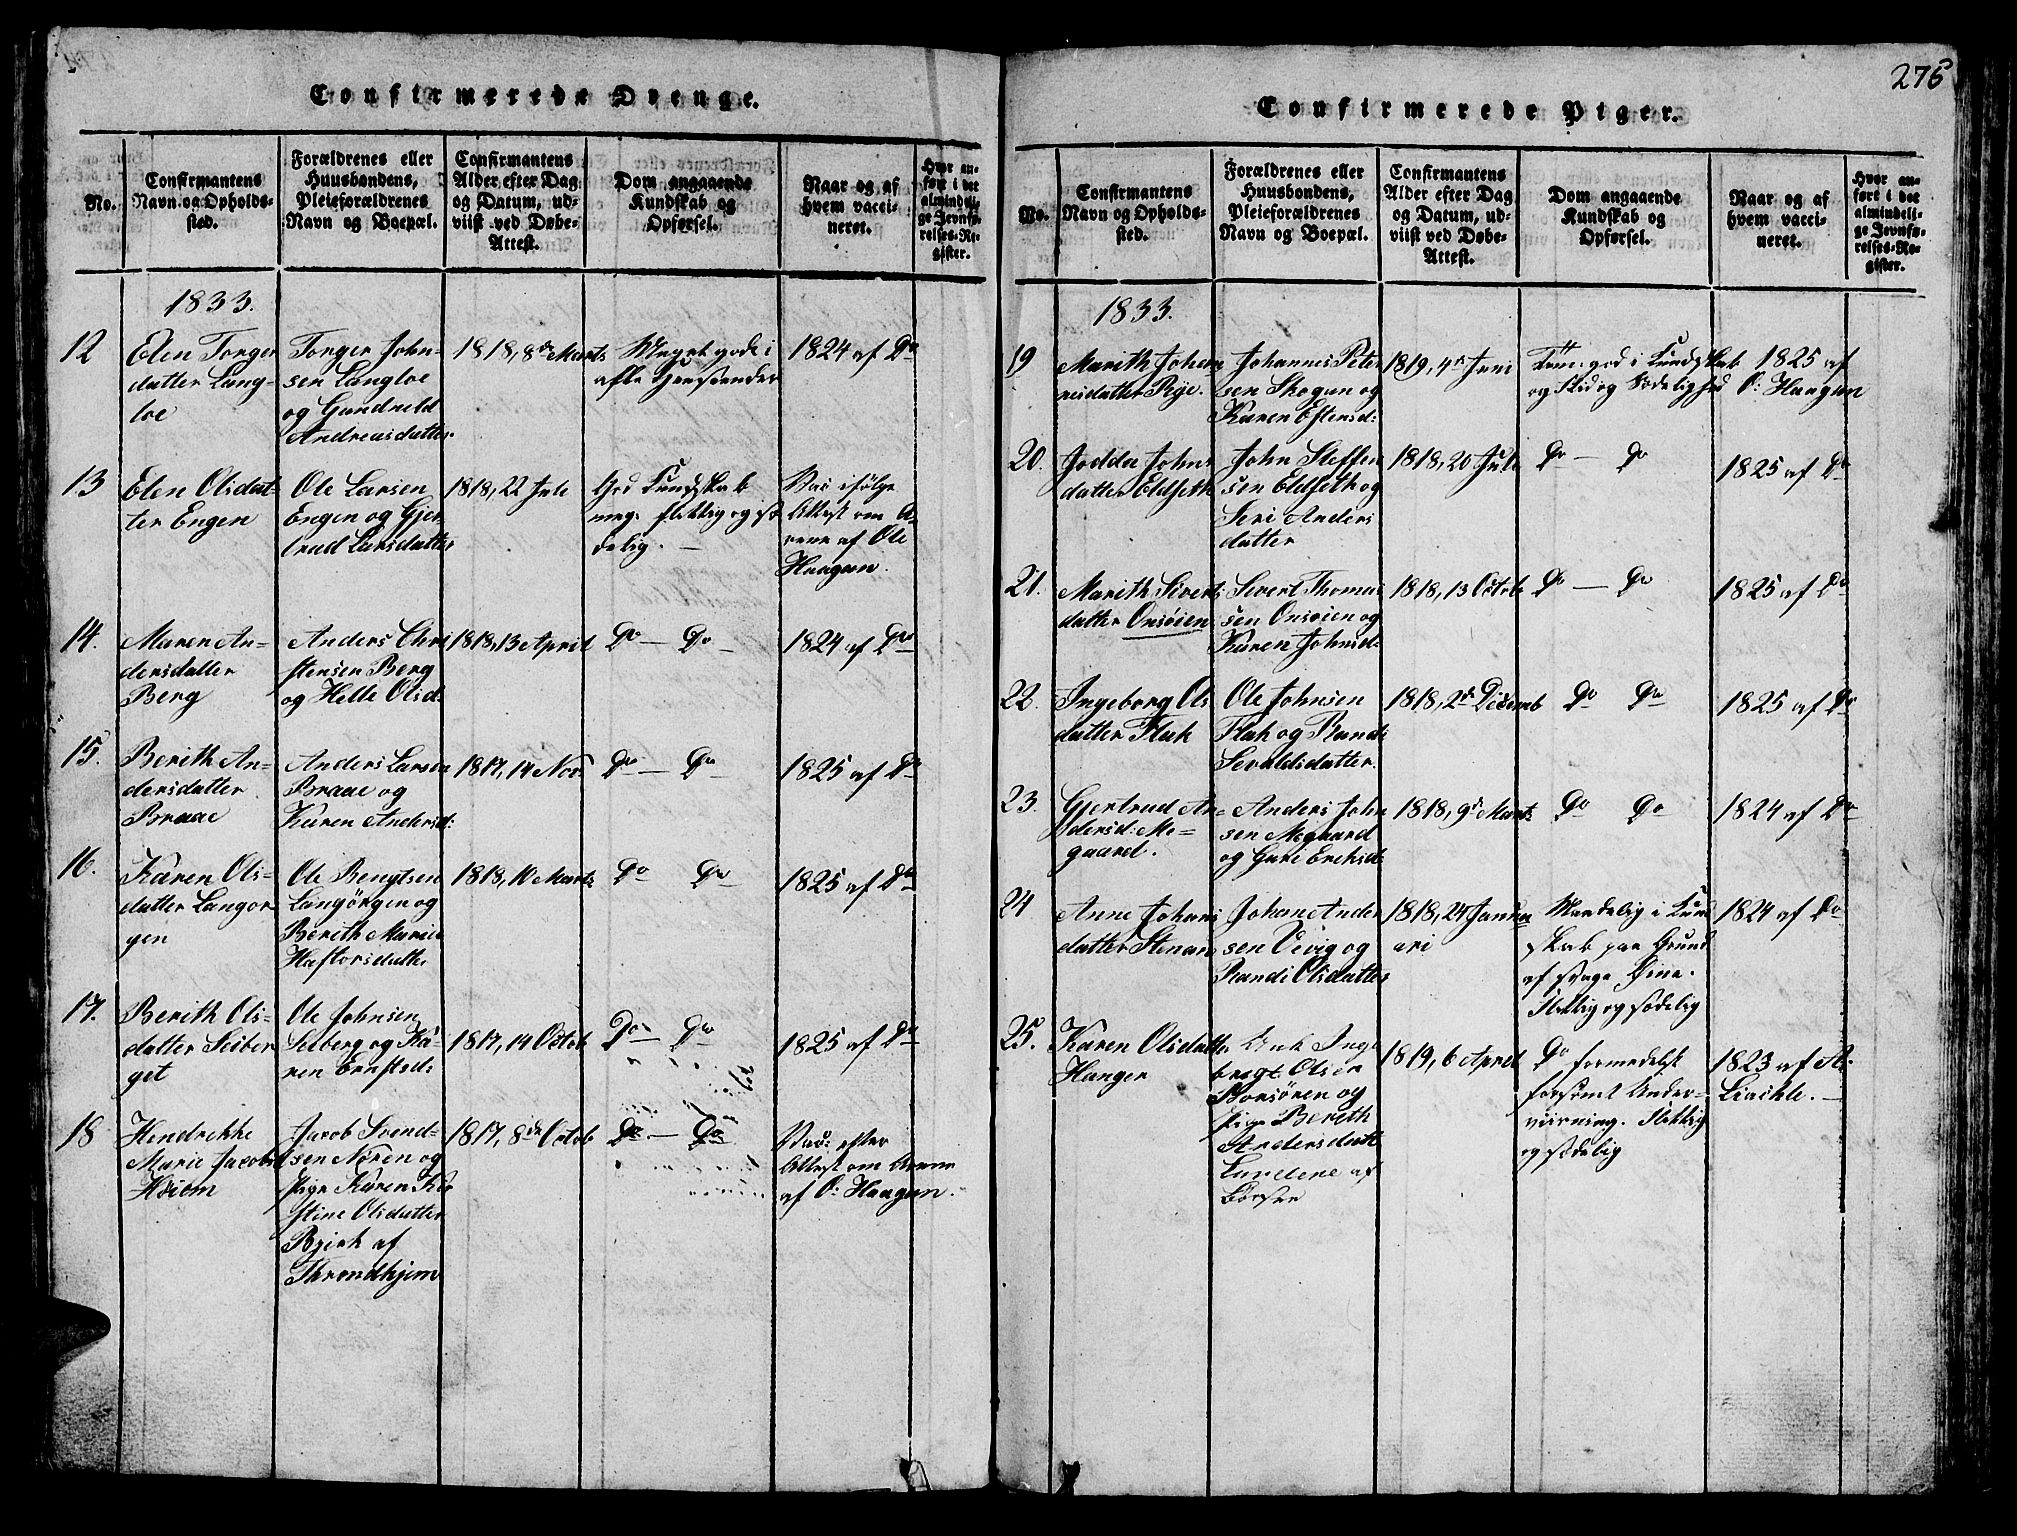 Confirmerede Drenge.
No.
Confirmantens
Navn og Opholds-
sted.
Forældrenes eller
Huusbondens,
Pleieforældrenes
Navn og Boepæl.
Confirmantens
Alder efter Dag
og Datum, ud-
viist ved Døbe-
Attest.
Dom angaaende
Kundskab og
Opførsel.
Naar og af
hvem vacci-
neret.
Hvor an-
ført i det
almindeli-
ge Jevnfø-
relses-Re-
gister.
1833.
12
Elen Torger
datter Lang-
loe
Torger John-
sen Langloe
og Gundnild
Andreasdatter
1818, 8de Marts
Meget gode i
alle Henseender
1824 af Do
13
Elen Olsdat-
ter Engen
Ole Larsen
Engen og Gjer
trud Larsdatter
1818, 22 Juli
God Kundskab
meg. flittig og sæ
delig. —
Vac. ifølge
Attest om A-
rene af Ole
Haagen.
14.
Maren An-
dersdatter
Berg
Anders Chri
stensen Berg
og Helle Olsd:
1818, 13 April
Do — Do
1824 af Do
15.
Berith An-
dersdatter
Braae
Anders Larsen
Braae og
Karen Andersd:
1817, 14 Nov:
Do — Do
1825 af Do
16.
Karen Ols-
datter Langør
gen
Ole Bengtsen
Langørgen og
Berith Marie
Haftorsdatter
1818, 10 Marts
Do Do
1825 af Do
17.
Berith Ols-
datter Seiber
get
Ole Johnsen
Selberg og Ka-
ren Ernstsd:
1817, 14 Octob
Do Do
1825 af Do
18
Hendrikke
Marie Jacobsd
Høiem
Jacob Svend-
sen Noren og
Pige Karen Kir
stine Olsdatter
Bjerk af
Throndhjem
1817, 8de Octob
Do — Do
Vac: efter
Attest om Arene
af O: Haagen.
Confirmerede Piger.
276
No.
Confirmantens
Navn og Opholds-
sted.
Forældrenes eller
Huusbondens,
Pleieforældrenes
Navn og Boepæl.
Confirmantens
Alder efter Dag
og Datum, ud-
viist ved Døbe-
Attest.
Dom angaaende
Kundskab og
Opførsel.
Naar og af
hvem vacci-
neret.
Hvor an-
ført i det
almindeli-
ge Jevnfø-
relses-Re-
gister.
1833.
19
Marith Johan
nesdatter Rye.
Johannes Peter
sen Skogan og
Karen Estensd:
1819, 4de Juni
god i Kundskab
og Flid og Sædelighed
1825 af
O: Haagen
20.
Johns
datter Eldseth
John Steffen
sen Eldseth og
Seri Anders
datter
1818, 20 Juli
Do — Do
1825 af Do
21.
Marith Siverts
datter Onsøien
Sivert Thomas
sen Onsøien og
Karen Johnsd:
1818, 13 Octob
Do — Do
1825 af Do
22.
Ingeborg Ols
datter Flak
Ole Johnsen
Flak og Rand:
Sevaldsdatter.
1818, 2de Decemb
Do Do
1825 af Do
23.
Gjertrud An-
dersd: Me-
gaard.
Anders John
sen Megaard
og Guri Eriksd:
1818, 9de Marts
Do Do
1824 af Do
24
Anne Johans
datter Stenan
Johan Ander
sen Vivig og
Randi Olsdatter
1818, 24 Janu
ari
Maadelig i Kund
skab paa Grund
af svage Øine.
Flittig og sædelig
1824 af Do
25.
Karen Olsdatter
Hanger
Unk Inge
brigt Olsen
Borsøren og
Pige Bereth
Andersdatt
Lundene af
Børsen
1819, 6 April
Do formedelst
forsømt Under-
viisning. Flittig
og sædelig
1823 af A.
Liachle. —